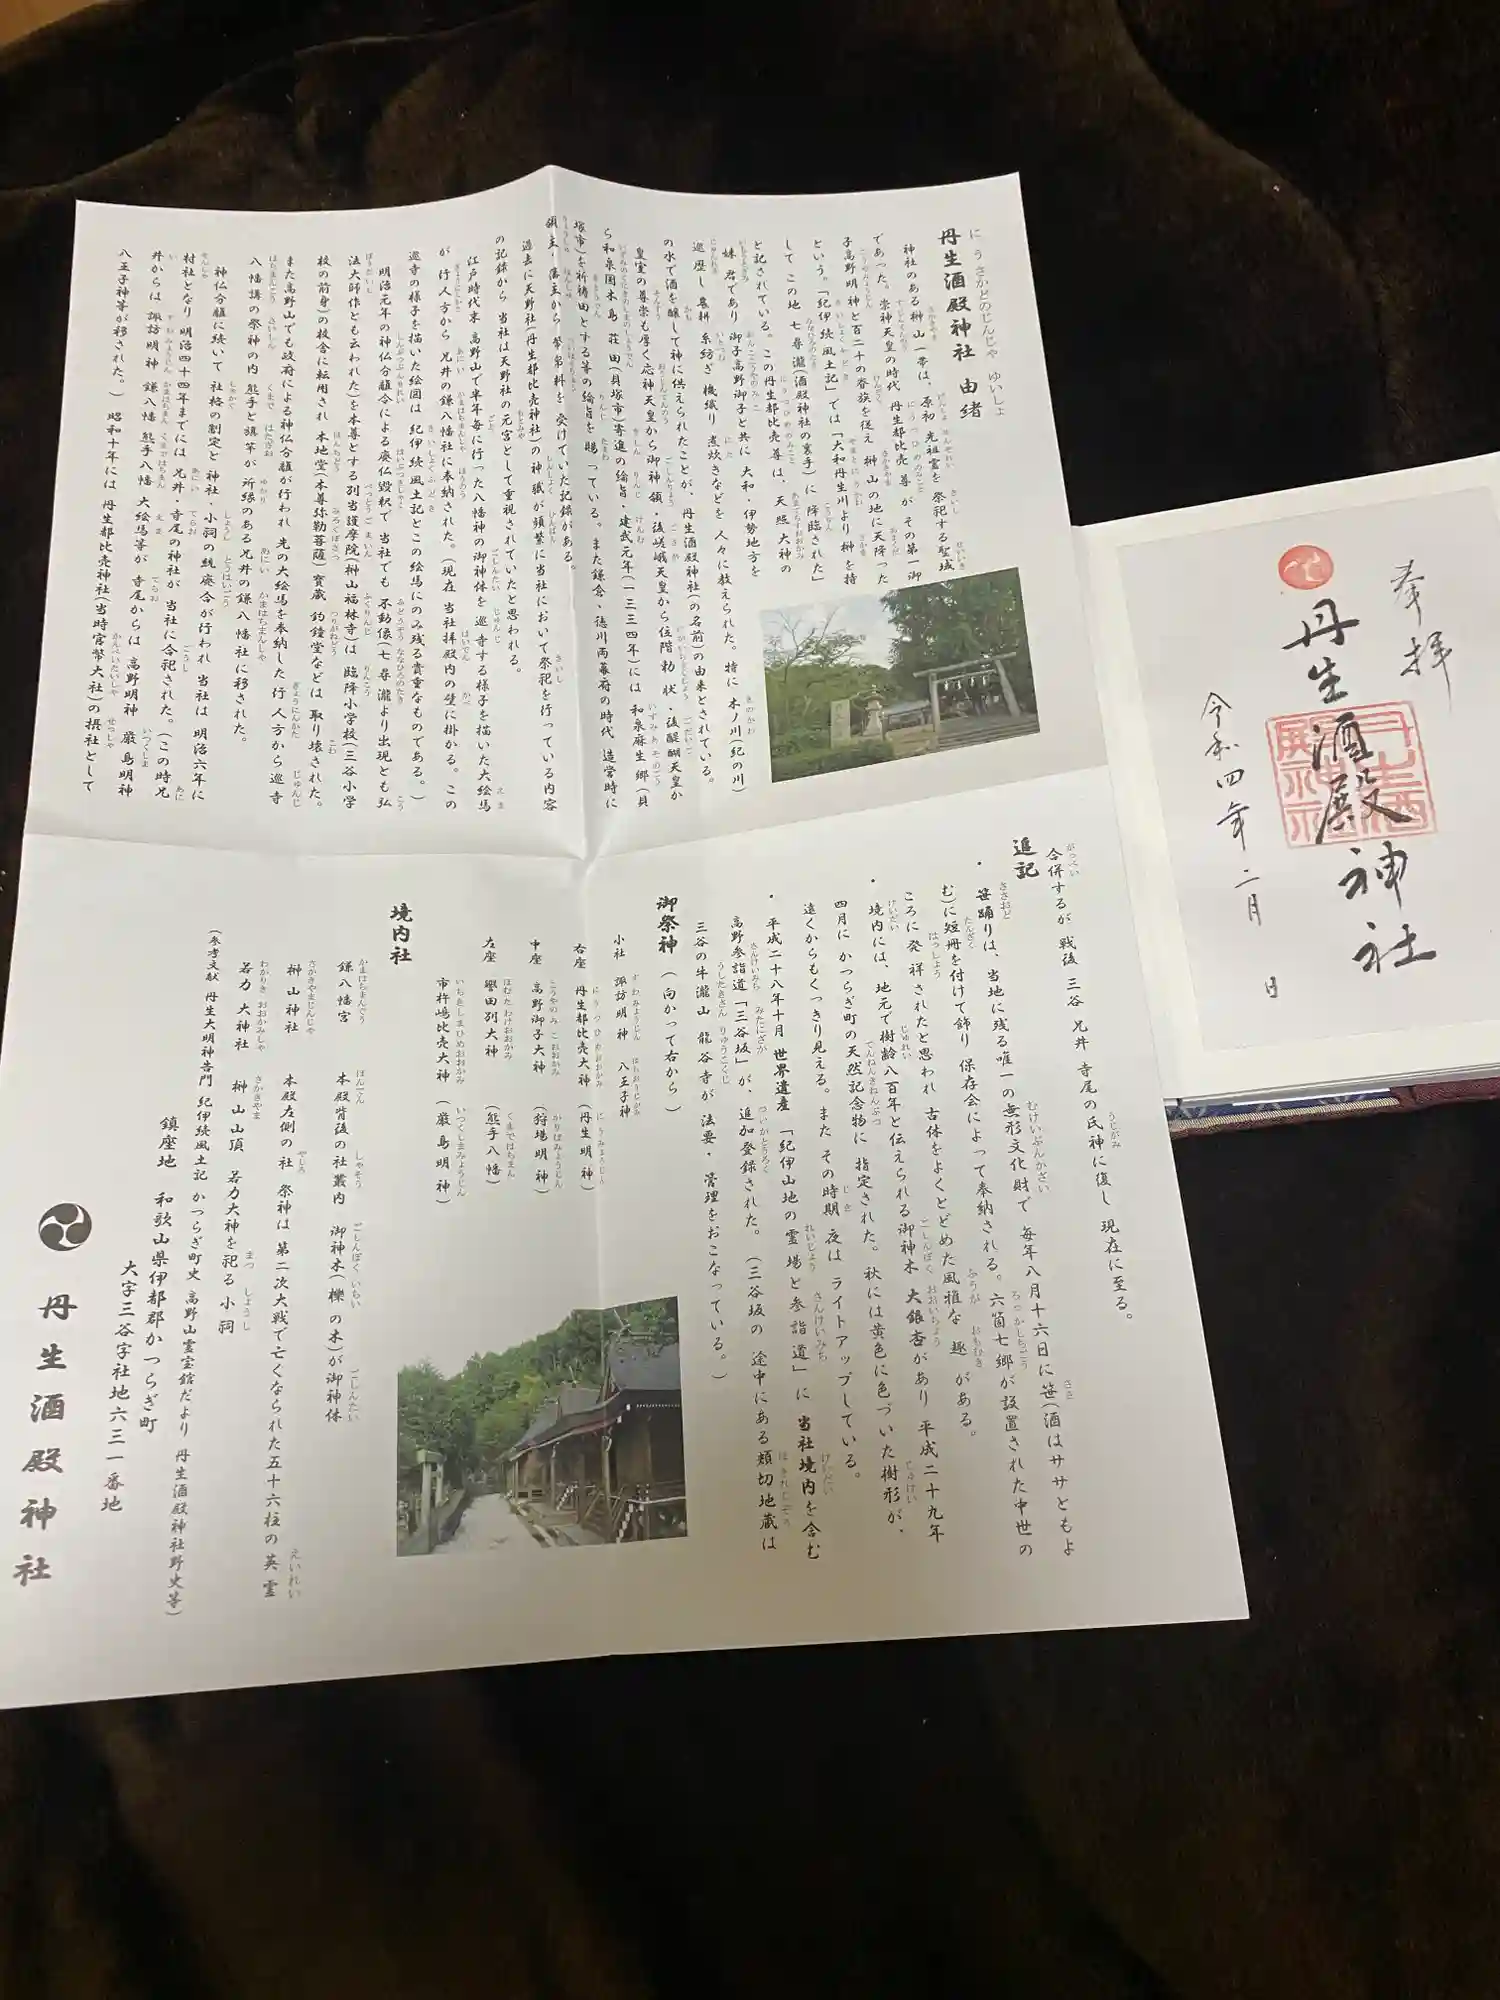 丹生酒殿神社 由緒
神社のある榊山一帯は、原初 先祖霊を祭祀する聖域
であった。崇神天皇の時代 丹生都比売尊がその第一御
子高野明神と百二十の眷族を従え 榊山の地に天降った
という。「紀伊続風土記」では「大和丹生川より榊を持
して この地 七尋滝(酒殿神社の裏手)に降臨された」
と記されている。この丹生都比売尊は、天照大神の
妹君であり 御子高野御子と共に 大和・伊勢地方を
巡歴し 農耕 糸紡ぎ 機織り 煮炊きなどを 人々に教えられた。特に 木ノ川(紀の川)
の水で酒を醸して神に供えられたことが、丹生酒殿神社(の名前)の由来とされている。
皇室の尊崇も厚く応神天皇から御神領・後嵯峨天皇から位階勅状・後醍醐天皇か
ら和泉国木島荘田(貝塚市)寄進の綸旨・建武元年(一三三四年)には 和泉麻生郷(貝
塚市)を祈祷田とする等の綸旨を 賜っている。また鎌倉・徳川両幕府の時代 造営時に
領主・藩主から 幣帛料を 受けていた記録がある。
過去に天野社(丹生都比売神社)の神職が頻繁に当社において祭祀を行っている内容
の記録から 当社は天野社の元宮として重視されていたと思われる。
江戸時代末 高野山で半年毎に行った八幡神の御神体を 巡寺する様子を描いた大絵馬
が 行人方から 兄井の鎌八幡神社に奉納された。(現在 当社拝殿内の壁に掛かる。この
巡寺の様子を描いた絵図は 紀伊続風土記とこの絵馬にのみ残る貴重なものである。)
明治元年の神仏分離令による廃仏毀釈で 当社でも 不動像(七尋滝より出現とも弘
法大師作とも云われた)を本尊とする別当護摩院(榊山福林寺)は 臨降小学校(三谷小学
校の前身)の校舎に転用され 本地堂(本尊弥勒菩薩)寳蔵 釣鐘堂などは 取り壊された。
また高野山でも政府による神仏分離が行われ 先の大絵馬を奉納した行人方から 巡寺
八幡講の祭神の内 熊手と旗竿が 所縁のある兄井の鎌八幡神社に移された。
神仏分離に続いて 社格の制定と 神社・小祠の統廃合が行われ 当社は 明治六年に
村社となり 明治四十四年までには 兄井・寺尾の神社が 当社に合祀された。(この時兄
井からは 諏訪明神 鎌八幡 熊手八幡 大絵馬等が 寺尾からは 高野明神 厳島明神
八王子神等が移された。) 昭和十年には 丹生都比売神社(当時官幣大社)の摂社として
合併するが 戦後 三谷 兄井 寺尾の氏神に復し 現在に至る。
追記
・笹踊りは、当地に残る唯一の無形文化財で 毎年八月十六日に笹(酒はササともよ
む)に短冊を付けて飾り 保存会によって奉納される。六箇七郷が設置された中世の
ころに発祥されたと思われ 古体をよくとどめた風雅な趣がある。
・境内には、地元で樹齢八百年と伝えられる御神木 大銀杏があり 平成二十九年
四月に かつらぎ町の天然記念物に 指定された。秋には黄色に色づいた樹形が、
遠くからもくっきり見える。また その時期 夜は ライトアップしている。
・平成二十八年十月 世界遺産「紀伊山地の霊場と参詣道」に 当社境内を含む
高野参詣道「三谷坂」が、追加登録された。(三谷坂の 途中にある頬切地蔵は
三谷の牛瀧山 龍谷寺が 法要・管理をおこなっている。)
御祭神 (向かって右から)
小社 諏訪明神 八王子神
右座 丹生都比売大神 (丹生明神)
中座 高野御子大神 (狩場明神)
左座 譽田別大神 (熊手八幡)
市杵嶋比売大神 (厳島明神)
境内社
鎌八幡宮 本殿背後の社叢内 御神木(櫟の木)が御神体
榊山神社 本殿左側の社 祭神は 第二次大戦で亡くなられた五十六柱の英霊
若力大神社 榊山山頂 若力大神を祀る小祠
(参考文献 丹生大明神告門 紀伊続風土記 かつらぎ町史 高野山霊宝館だより 丹生酒殿神社野史等)
鎮座地 和歌山県伊都郡かつらぎ町
大字三谷字社地六三一番地
丹生酒殿神社
奉拝
丹生酒殿神社
令和四年二月 日